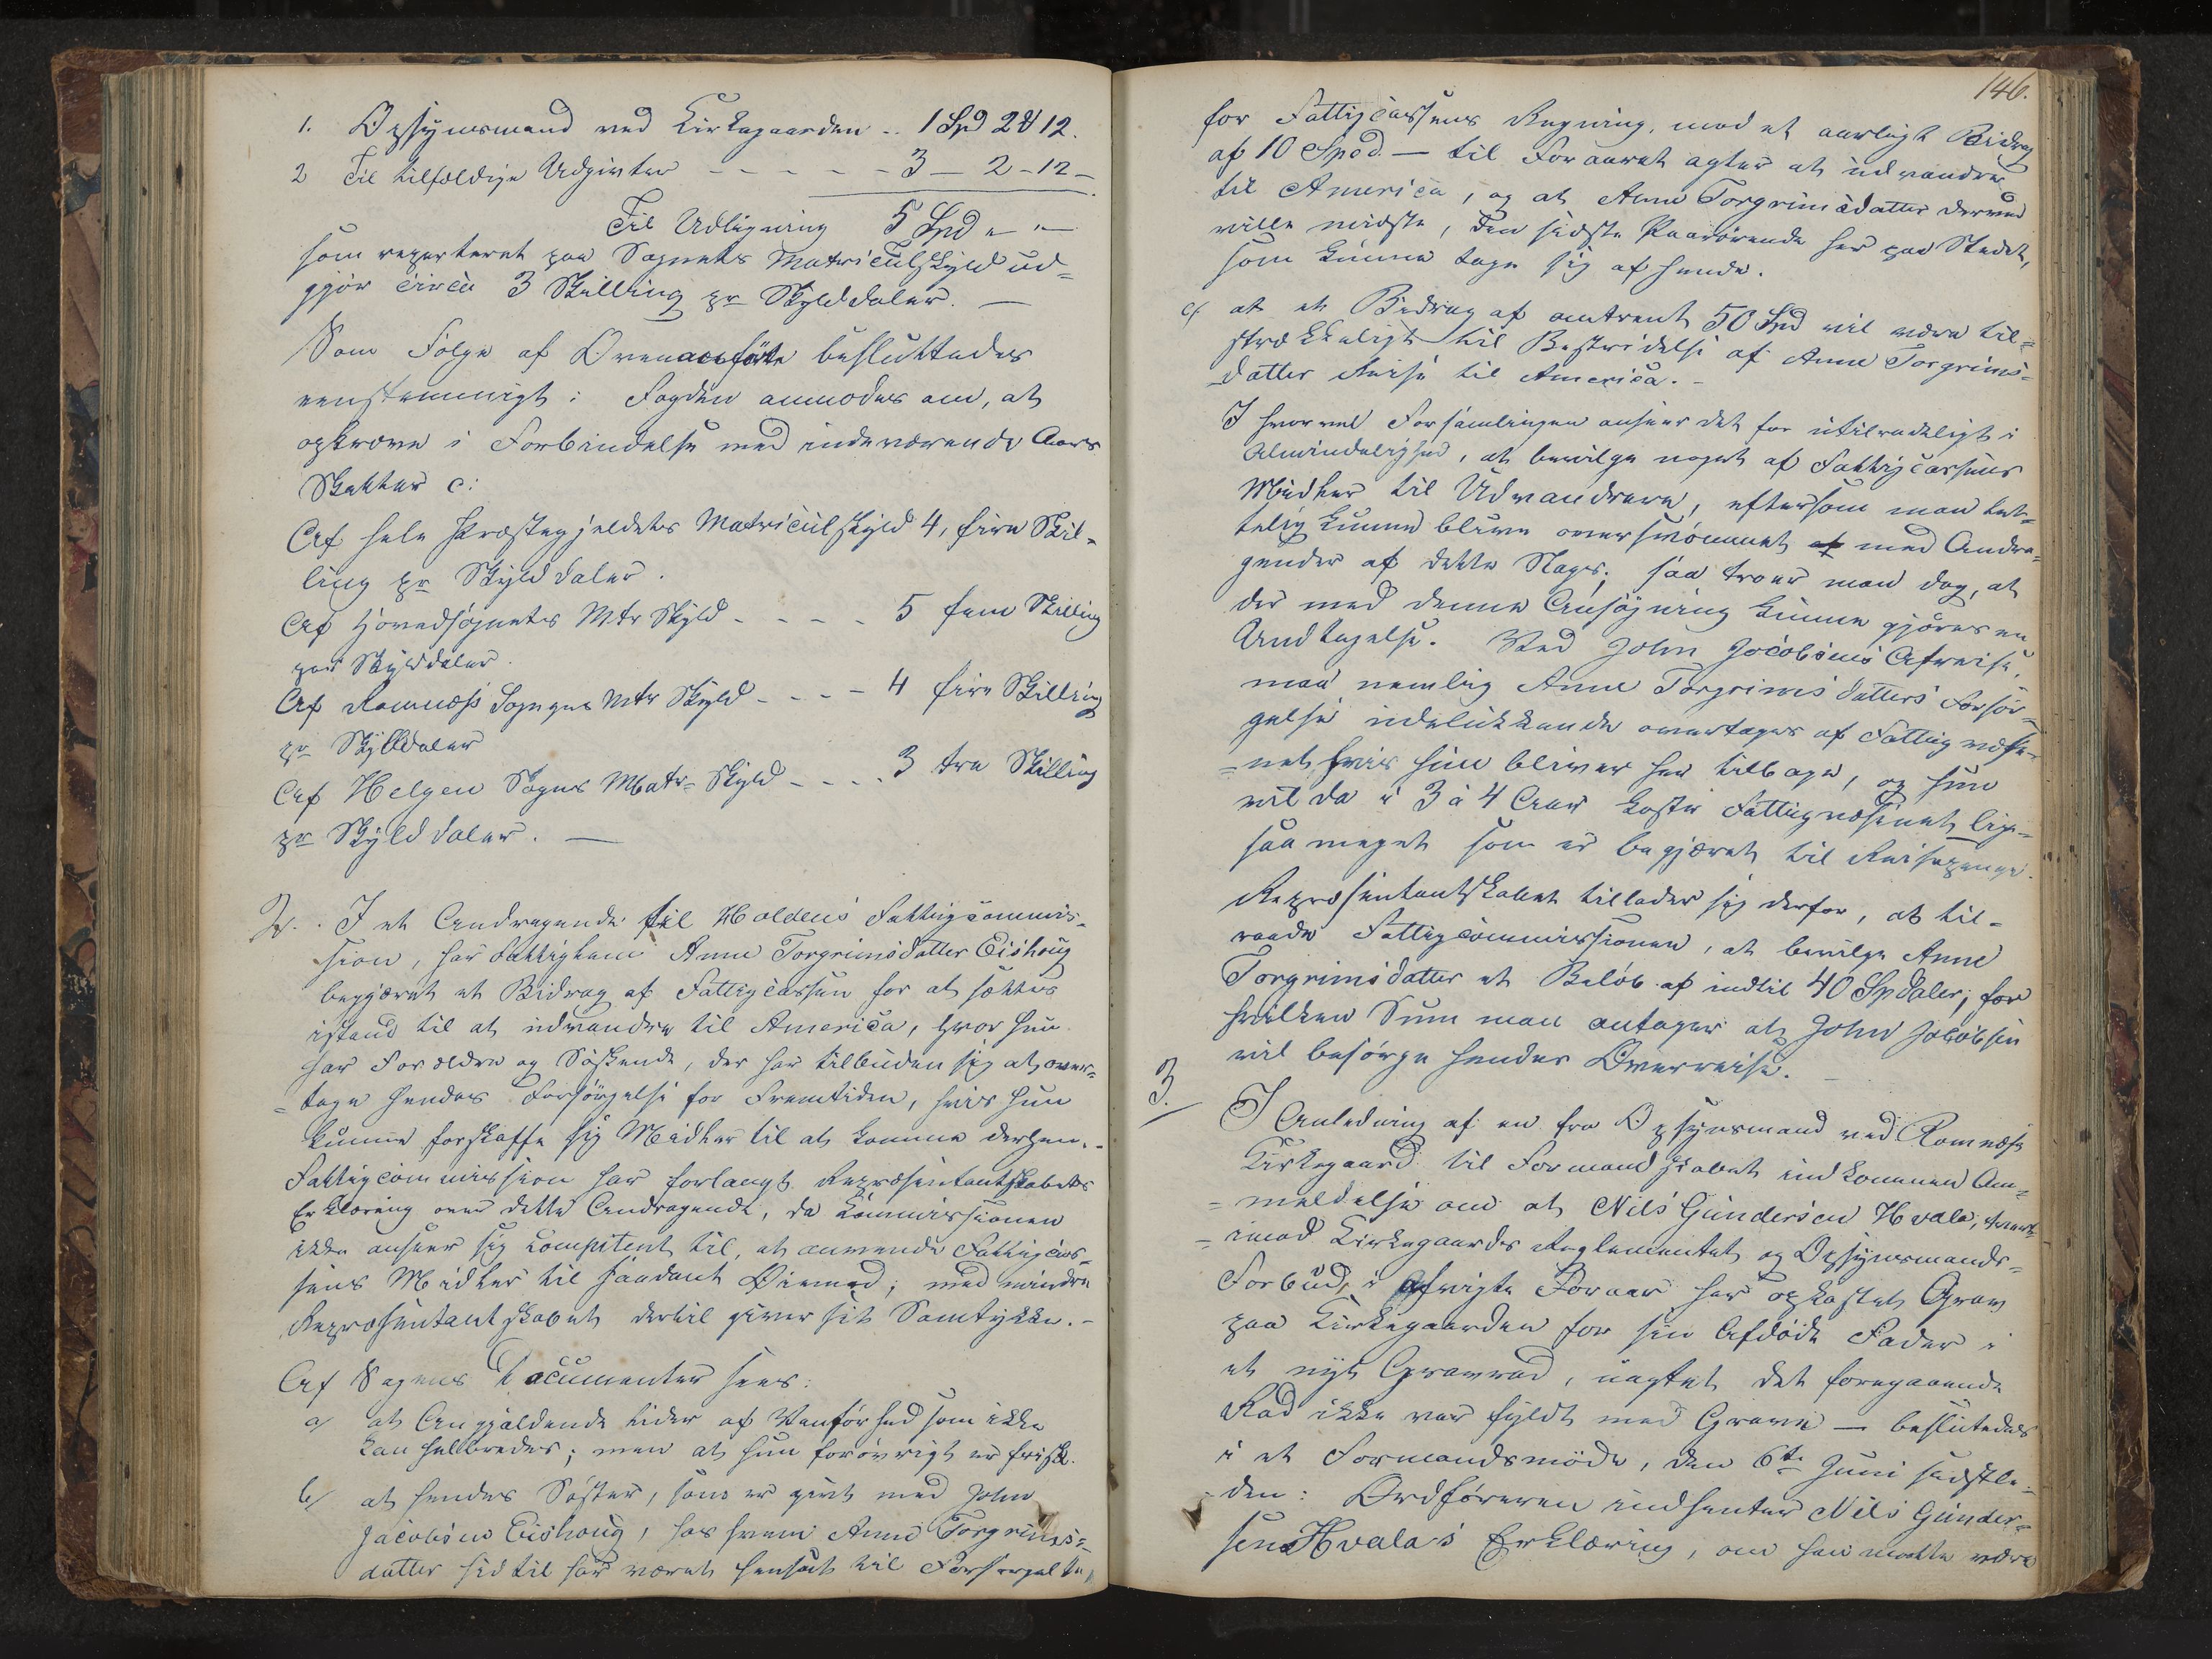 1. Opsynsmand ved Kirkegaarden .. 1 Spd 2 ℔ 12.
2 Til tilfældige Udgivter - - - - - 3 - 2 - 12 -
Til Udligning 5 Spd " "
som reparteret paa Sognets Matriculskyld ud=
gjør circa 3 Skilling pr Skylddaler. —
Som Følge af Ovenanførte besluttedes
eenstemmigt: Fogden anmodes om, at
opkræve i Forbindelse med indeværende Aars
Skatter c:
Af hele Præstegjeldets Matriculskyld 4, fire Skil-
ling pr Skylddaler.
Af Hovedsognets Mtr Skyld - - - - 5 fem Skilling
per Skylddaler.
Af Romnæss Sognes Mtr Skyld - - - 4 fire Skilling
pr Skylddaler
Af Helgen Sogns Matr= Skyld - - - . 3 tre Skilling
pr Skylddaler. —
2. I et Andragende til Holdens Fattigcommis-
sion, har Fattiglem Anne Torgrimsdatter Eishoug
begjæret et Bidrag af Fattigcassen for at sættes
istand til at udvandre til America, hvor hun
har Forældre og Søskende, der har tilbuden sig at over=
=tage hendes Forsørgelse for Fremtiden, hvis hun
kunne forskaffe sig Midler til at komme derhen. -
Fattigcommission har forlangt Repræsentantskabets
Erklæring over dette Andragende, da Commissionen
ikke anseer sig competent til, at anvende Fattigcas-
sens Midler til saadant Øiemed; med mindre
Repræsentantskabet dertil giver sit Samtykke. -
Af Sagens Documenter sees:
a/ at Angjældende lider af Vanførhed som ikke
kan helbredes; men at hun forøvrigt er frisk.
b/ at hendes Søster, som er givt med John
Jacobsen Eishoug, hos hvem Anne Torgrims=
datter hidtil har været hensat til Forsørgelse
146.
for Fattigcassens Regning, mod et aarligt Bidrag
af 10 Spd. — til Foraaret agter at udvandre
til America, og at Anne Torgrimsdatter derved
ville midste, den sidste Paarørende her paa Stedet,
som kunne tage sig af hende.
c/ at et Bidrag af omtrent 50 Spd vil være til=
strækkeligt til Bestridelse af Anne Torgrims=
datters Reise til America. -
I hvorvel Forsamlingen anseer det for utilraadeligt i
Almindelighed, at bevilge noget af Fattigcassens
Midler til Udvandrere, eftersom man let=
telig kunne blive oversvømmet af med Andra=
gender af dette Slags; saa troer man dog, at
der med denne Ansøgning kunne gjøres en
Undtagelse. Ved John Jacobsens Afreise,
maa nemlig Anne Torgrimsdatters Forsør-
gelse udelukkende overtages af Fattigvæse-
=net, hvis hun bliver her tilbage, og hun
vil da i 3 à 4 Aar koste Fattigvæsenet lige-
saa meget som er begjæret til Reisepenge.
Repræsentantskabet tillader sig derfor, at til-
raade Fattigcommissionen, at bevilge Anne
Torgrimsdatter et Beløb af indtil 40 Spdaler; for
hvilken Sum man antager at John Jacobsen
vil besørge hendes Overreise. -
3. I Anledning af en fra Opsynsmand ved Romnæss
Kirkegaard til Formandskabet indkommen An-
=meldelse om at Nils Gundersen Hvala, tvert
=imod Kirkegaards Reglementet og Opsynsmands=
Forbud, i afvigte Foraar har opkastet Grav
paa Kirkegaarden for sin Afdøde Fader i
et nyt Gravrad, uagtet det foregaaende
Rad ikke var fyldt med Grave — besluttedes
i et Formandsmøde, den 6te Juni sidstle-
den: Ordføreren indhenter Nils Gunder=
sens Hvala's Erklæring, om han maatte være